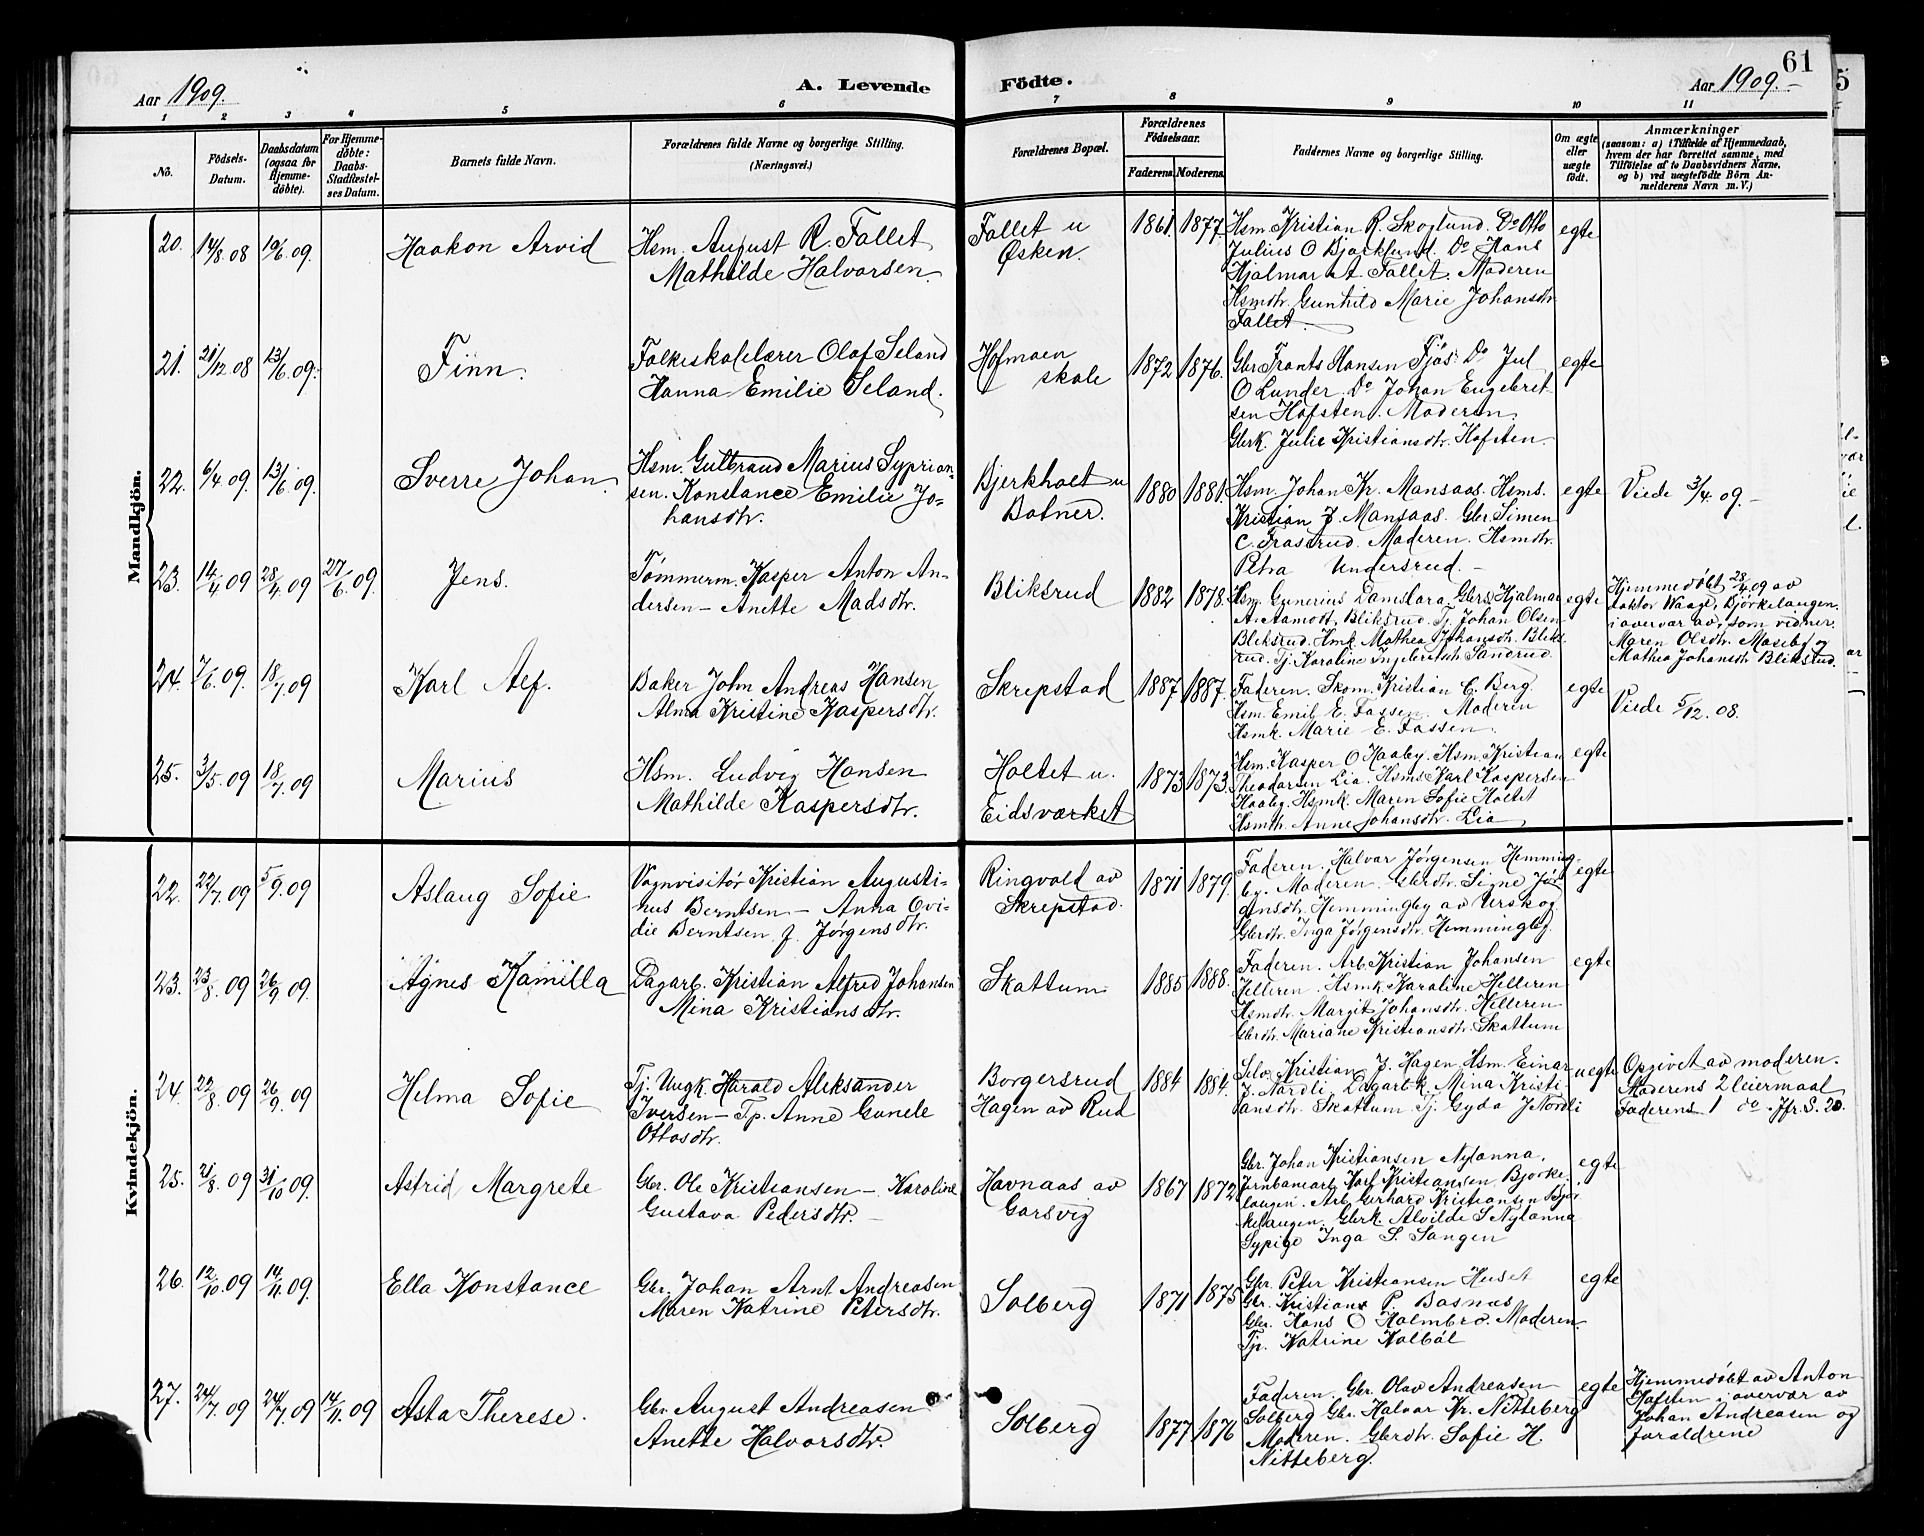 61
Aar 1909.
A. Levende Födte.
Aar 1909.
1 2 3 4 5 6 7 8 9 10 11
No.
Födsels-
Datum.
Daabsdatum
(ogsaa for
Hjemme-
döbte).
For Hjemme-
döbte:
Daabs
Stadfæstel-
ses Datum.
Barnets fulde Navn.
Forældrenes fulde Navne og borgerlige Stilling.
(Næringsvei.)
Forældrenes Bopæl.
Forældrenes
Födselsaar.
Faderens. Moderens.
Faddernes Navne og borgerlige Stilling.
Om ægte
eller
uægte
födt.
Anmærkninger
(saasom: a) i Tilfælde af Hjemmedaab,
hvem der har forrettet samme, med
Tilföielse af to Daabsvidners Navne,
og b) ved uægtefödte Börn An-
melderens Navn m. V.)
Mandkjön.
20. 14/8 08 10/6 09. Haakon Arvid
Hsm. August R. Fallet
Mathilde Halvorsen.
Fallet u
Øsken.
1861. 1877.
Hsm. Kristian R. Skoglund. Do Otto
Julius O Bjørklund. Do Hans
Hjalmar A. Fallet. Moderen
Hsmdtr. Gunhild Marie Johansdtr.
Fallet.
egte
21. 21/12 08 13/6 09. Finn.
Folkeskolelærer Olaf Seland
Hanna Emilie Seland.
Hofmoen
skole
1872 1876.
Gbr Frants Hansen Fjøs. Do Jul
O Lunder. Do Johan Engebret-
sen Hofsten. Moderen.
Gbrk. Julie Kristiansdtr. Hofsten.
egte
22. 6/4 09. 13/6 09. Sverre Johan.
Hsm. Gulbrand Marius Syprian-
sen. Konstance Emilie Jo-
hansdtr.
Bjerkholt u
Botner.
1880 1881.
Hsm. Johan Kr. Mansaas. Hsms.
Kristian J. Mansaas. Gbr. Simen
C. Frastrud. Moderen. Hsmdtr.
Petra Undersrud.
egte
Viede 3/4 09.
23. 14/4 09 28/4 09 27/6 09. Jens.
Tømmerm. Kasper Anton An-
dersen - Anette Madsdtr.
Bliksrud
1882 1878.
Hsm. Gunerius Damslara. Gbrs. Hjalmar
A. Aamodt, Bliksrud. Tj. Johan Olsen
Bliksrud. Hmk. Mathea Johansdtr. Bliks-
rud. Tj. Karoline Ingebretsdtr. Sandrud.
egte
Hjemmedøbt 28/4 09 av
doktor Waage, Bjørkelangen.
i overvær av, som vidner.
Maren Olsdtr. Moseby og
Mathea Johansdtr Bliksrud.
24. 7/6 09. 18/7 09 Karl Alf.
Baker John Andreas Hansen
Alma Kristine Kaspersdtr.
Skrepstad
1887 1887.
Faderen. Skom. Kristian C. Berg.
Hsm. Emil E. Fossen. Moderen
Hsmk. Marie E. Fossen.
egte
Viede 5/12. 08.
25. 3/5 09 18/7 09 Marius
Hsm. Ludvig Hansen
Mathilde Kaspersdtr.
Holtet u.
Eidsverket
1873 1873.
Hsm. Kasper O Haaby. Hsm. Kristian
Theodorsen Lia. Hsms Karl Kaspersen
Haaby. Hsmk. Maren Sofie Holtet
Hsmdtr. Anne Johansdtr. Lia
egte
Kvindekjön.
22. 22/7 09 5/9 09 Aslaug Sofie
Vognvisitør Kristian Augusti-
nus Berntsen - Anna Ovi-
die Berntsen f. Jørgensdtr.
Ringvold av
Skrepstad.
1871 1879.
Faderen. Halvar Jørgensen Hemming-
by. Moderen. Gbrdtr. Signe Jør-
gensdtr. Hemmingby av Urskog
Gbrdtr. Inga Jørgensdtr. Hemmingby.
egte
23. 23/8 09 26/9 09. Agnes Kamilla
Dagarb. Kristian Alfred Johansen
Mina Kristiansdtr.
Skattum
1885 1888.
Faderen. Arb. Kristian Johansen
Helleren. Hsmk. Karoline Helleren
Hsmdtr. Margit Johansdtr. Helleren
Gbrdtr. Mariane Kristiansdtr. Skattum
egte
24. 22/8 09 26/9 09 Helma Sofie
Tj. Ungk. Harald Aleksander
Iversen - Tp. Anne Gunele
Ottosdtr.
Borgersrud
Hagen av Rud
1884 1884.
Selv. Kristian J. Hagen Hsm. Einar
J. Nordli. Dagarbk. Mina Kristi-
ansdtr. Skattum. Tj. Gyda J Nordli
uegte
Opgivet av moderen.
Moderens 2 leiermaal
Faderens 1 do. Jfr. S. 20.
25. 21/8 09 31/10 09. Astrid Margrete
Gbr. Ole Kristiansen - Karoline
Gustava Pedersdtr.
Havnaas av
Garsvig
1867 1872
Gbr. Johan Kristiansen Nylanna.
Jernbanearb. Karl Kristiansen. Bjørke-
langen. Arb. Gerhard Kristiansen Bjør-
kelangen. Gbrk. Alvilde S Nylanna
Sypige Inga S. Sangen
egte
26. 12/10 09 14/11 09. Ella Konstance
Gbr. Johan Arnt Andreasen
Maren Katrine Petersdtr.
Solberg
1871 1875
Gbr. Peter Kristiansen Huset
Gbr. Kristian P. Basnæs
Gbr. Hans O Holmbro. Moderen.
Tp. Katrine Kolbøl
egte
27. 24/7 09 24/7 09 14/11 09 Asta Therese.
Gbr. August Andreasen
Anette Halvorsdtr.
Solberg
1877 1876
Faderen. Gbr. Olav Andreasen
Solberg Gbr. Halvar Kr. Nitteberg
Moderen. Gbrdtr. Sofie H.
Nitteberg.
egte
Hjemmedøbt av Anton
Hofsten i overvær av
Johan Andreasen og
foraldrene